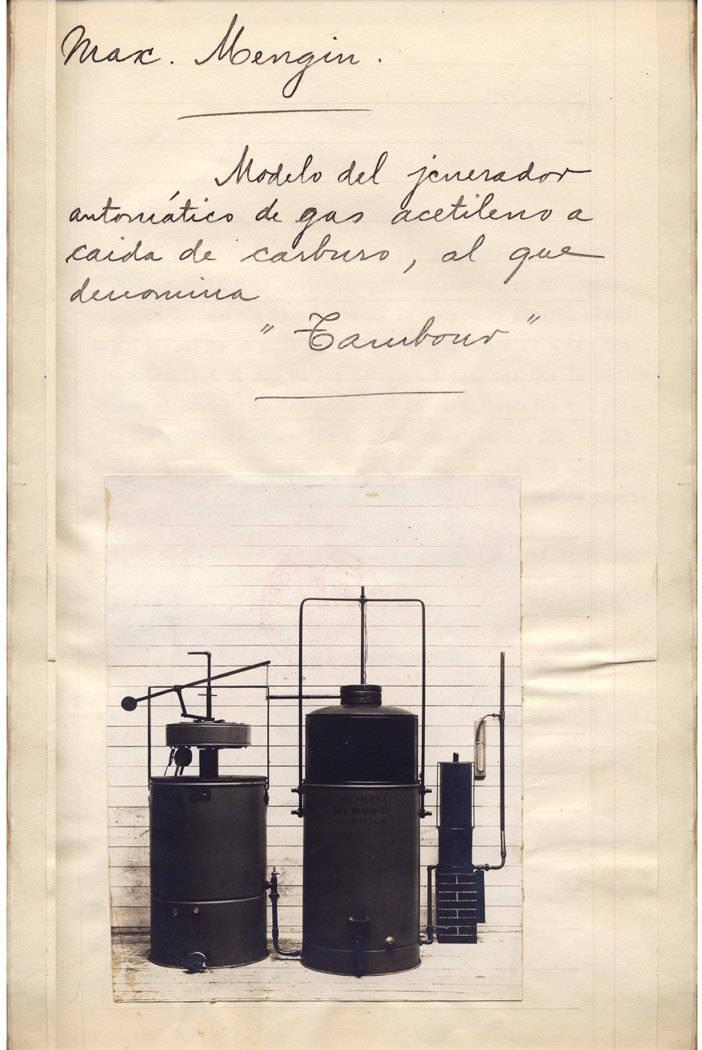 Max. Mengin.
Modelo del jenerador
automático de gas acetileno a
caida de carburo, al que
denomina
"Tambour"
ACETILENA
SANTIAGO